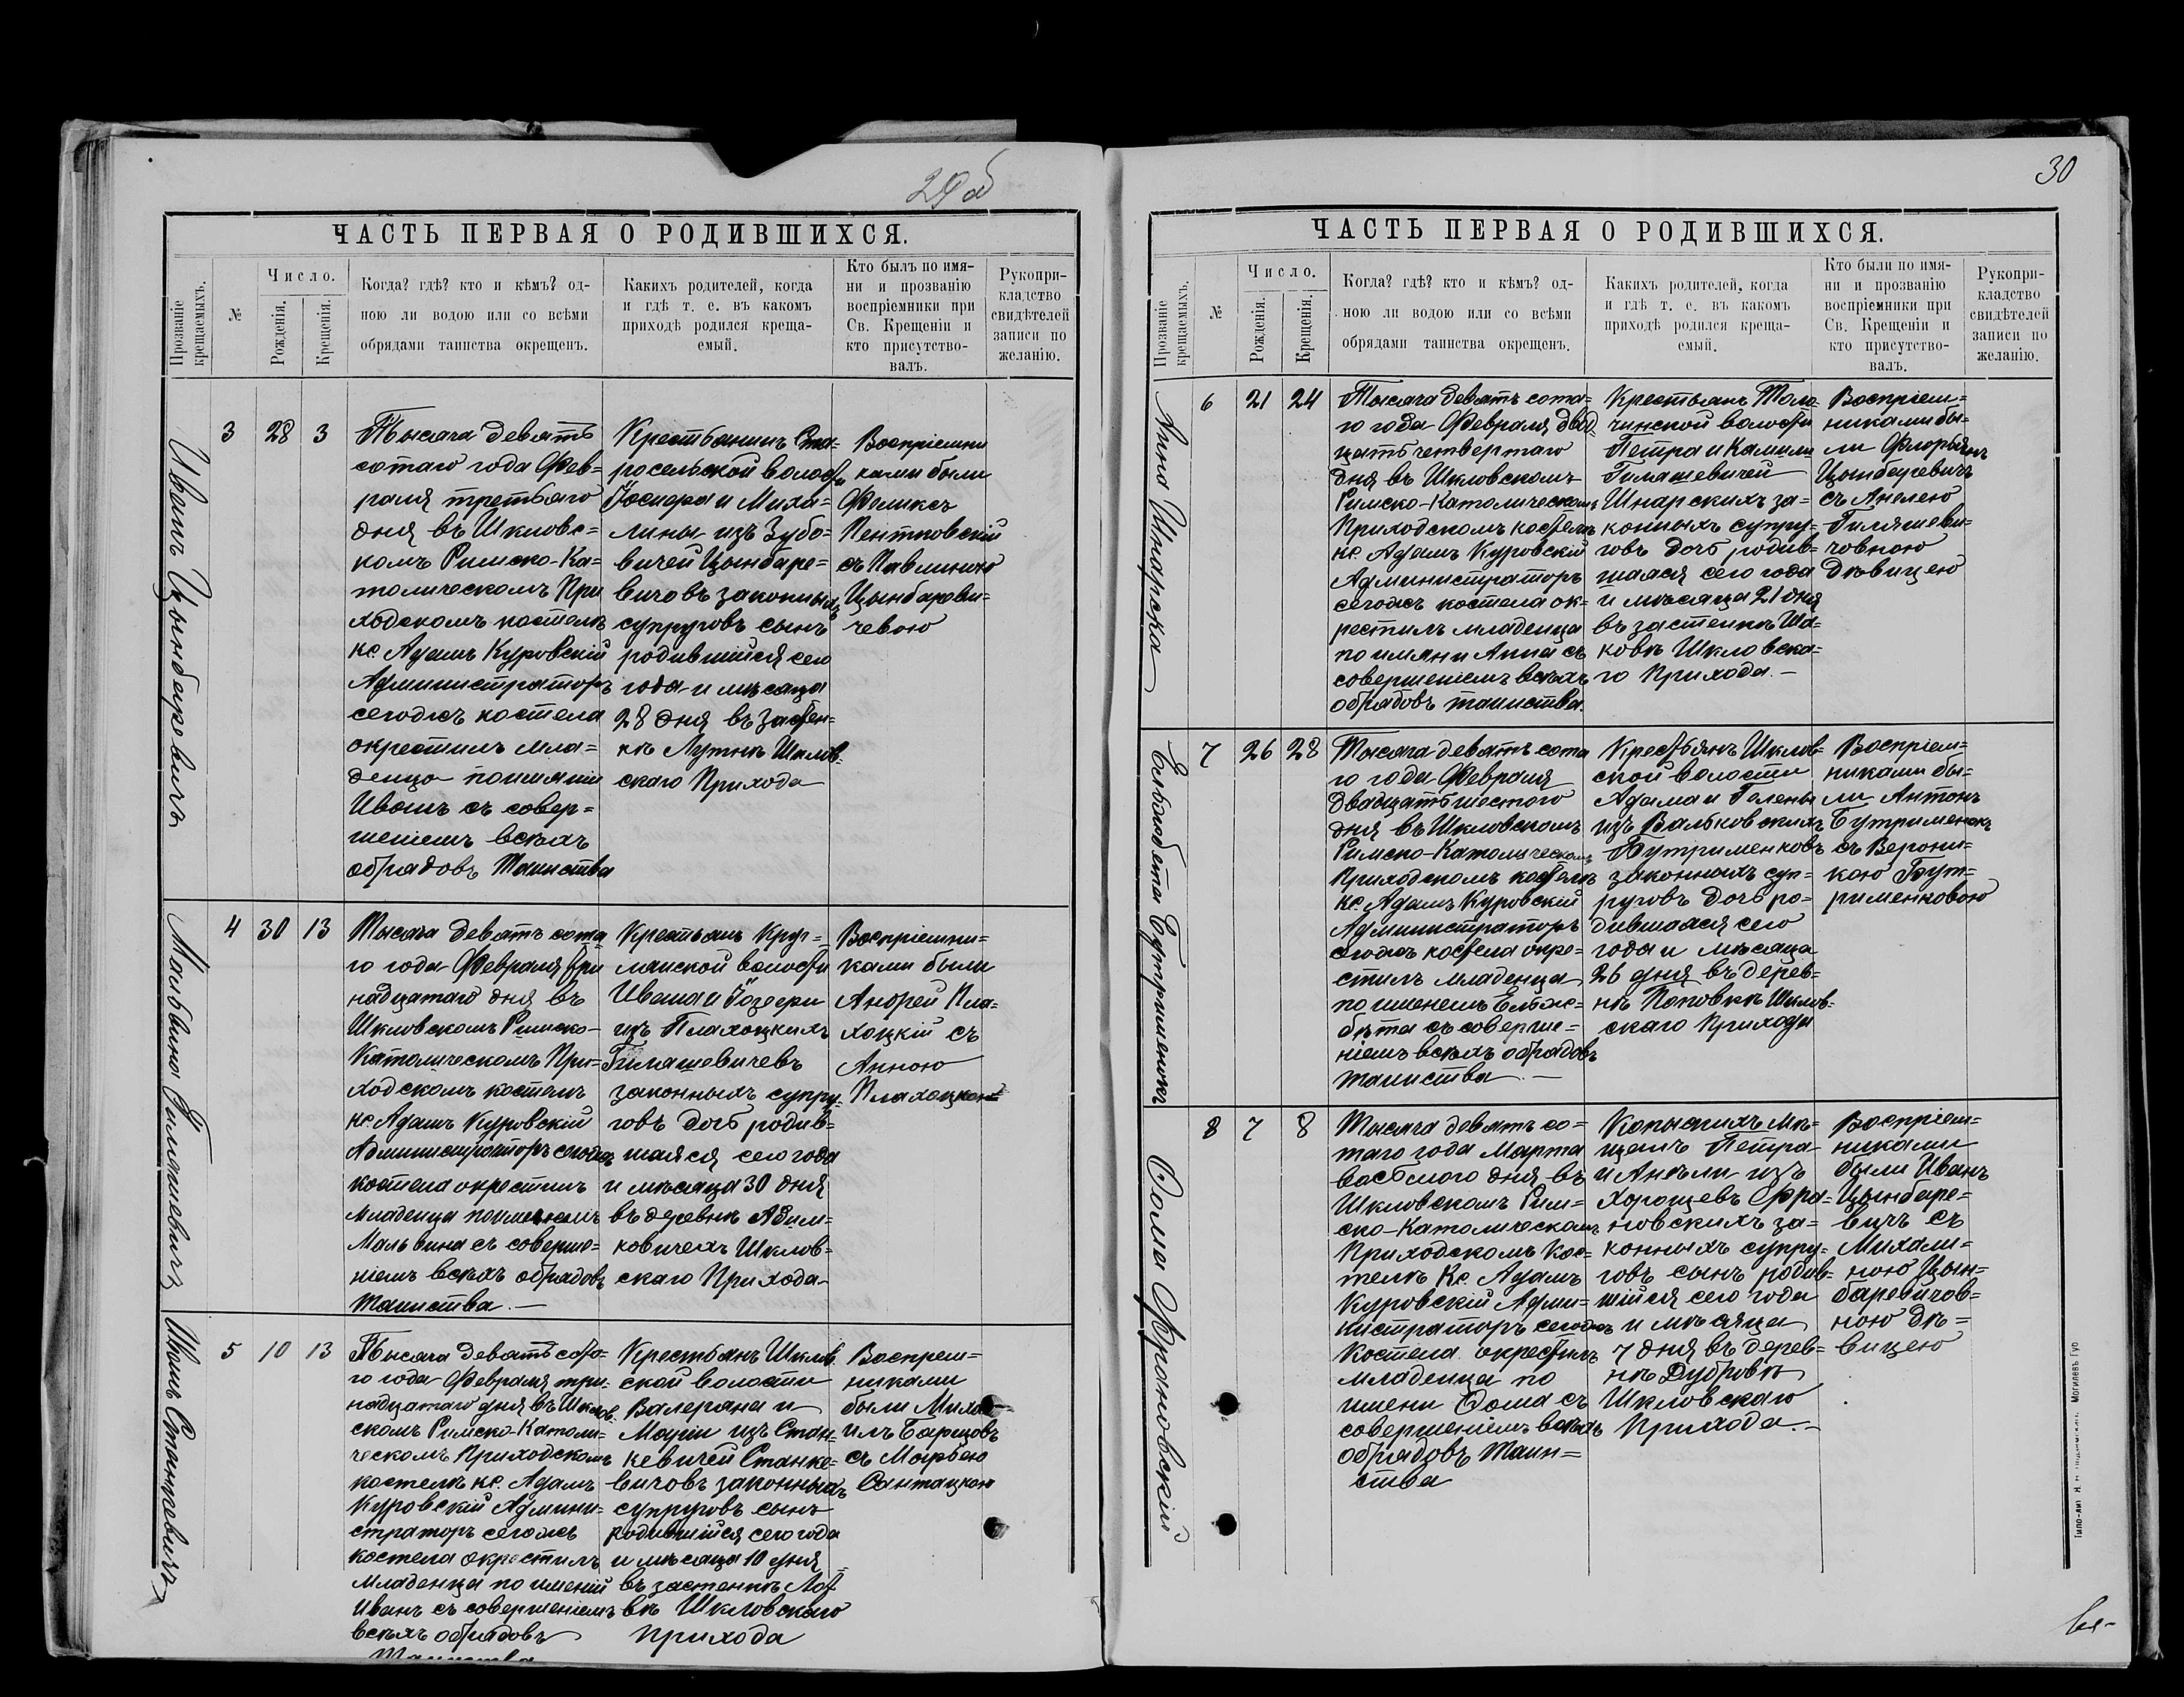 29 об
ЧАСТЬ ПЕРВАЯ О РОДИВШИХСЯ.
Прозваніе крещаемыхъ.
№
Число.
Рожденія.
Крещенія.
Когда? гдѣ? кто и кѣмъ? од-
ною ли водою или со всѣми
обрядами таинства окрещенъ.
Какихъ родителей, когда
и гдѣ т. е. въ какомъ
приходѣ родился креща-
емый.
Кто былъ по имя-
ни и прозванію
воспріемники при
Св. Крещеніи и
кто присутство-
валъ.
Рукопри-
кладство
свидѣтелей
записи по
желанію.
Иванъ Цынбаревичъ
3 28 3
Тысяча девять
сотаго года Фев-
раля третьяго
дня въ Шкловс=
комъ Римско-Ка=
толическомъ При
ходскомъ костелѣ
кс. Адамъ Куровскій
Администраторъ
сегожъ костела
окрестилъ мла=
денца
Иванъ съ совер=
шеніемъ всѣхъ
обрядовъ Таинства
Крестьянинъ Ста-
росельской волости
Іосифа и Миха=
лины изъ Зубо=
вичей Цынбаре=
вичовъ законныхъ
супруговъ сынъ
родившійся сего
года и мѣсяца
28 дня въ застен=
кѣ Лутнѣ Шклов-
скаго Прихода
Воспріемни
ками были
Феликсъ
Пентковскій
съ Павлиною
Цынбареви=
чевою
Мальвина Гиляшевичъ
4 30 13
Тысяча девять сота
го года Февраля три
надцатаго дня въ
Шкловскомъ Римско-
Католическомъ При=
ходскомъ костелѣ
кс. Адамъ Куровскій
Администраторъ сегожъ
костела окрестилъ
младенца
Мальвина съ соверше=
ніемъ всѣхъ обрядовъ
таинства. —
Крестьянъ Круг=
лянской волости
Ивана и Іозефи
изъ Плахоцкихъ
Гиляшевичевъ
законныхъ супру-
говъ дочь родив=
шаяся сего года
и мѣсяца 30 дня
въ деревнѣ
ковичехъ Шклов=
скаго Прихода
Воспріемни=
ками были
Андрей Пла=
хоцкій съ
Анною
Плахоцкою
Иванъ Станкевичъ
5 10 13
Тысяча девять сота-
го года Февраля три-
надцатаго дня въ Шклов-
скомъ Римско-Католи=
ческомъ Приходскомъ
костелѣ кс. Адамъ
Куровскій Админи=
страторъ сегожъ
костела окрестилъ
младенца по имени
Иванъ съ совершеніемъ
всѣхъ обрядовъ
Таинства
Крестьянъ Шклов-
ской волости
Валеріана и
Маріи изъ Стан=
кевичей Станке=
вичовъ законныхъ
супруговъ сынъ
родившійся сего года
и мѣсяца 10 дня
въ застенкѣ
Шкловскаго
прихода
Воспрем=
никами
были Миха-
илъ Барцовъ
съ Марьею
Сантацкою
30
ЧАСТЬ ПЕРВАЯ О РОДИВШИХСЯ.
Прозваніе крещаемыхъ.
№
Число.
Рожденія.
Крещенія.
Когда? гдѣ? кто и кѣмъ? од-
ною ли водою или со всѣми
обрядами таинства окрещенъ.
Какихъ родителей, когда
и гдѣ т. е. въ какомъ
приходѣ родился креща-
емый.
Кто были по имя-
ни и прозванію
воспріемники при
Св. Крещеніи и
кто присутство-
валъ.
Рукопри-
кладство
свидѣтелей
записи по
желанію.
Анна Шнарская
6 21 24
Тысяча девять сота=
го года Февраля двад-
цать четвертаго
дня въ Шкловскомъ
Римско-Католическомъ
Приходскомъ костелѣ
кс. Адамъ Куровскій
Администраторъ
сегожъ костела ок=
рестилъ младенца
по имяни Анна съ
совершеніемъ всѣхъ
обрядовъ таинства.
Крестьянъ Толо-
чинской волости
Петра и Камили
Гиляшевичей
Шнарскихъ за=
конныхъ супру=
говъ дочь родив=
шаяся сего года
и мѣсяца 21 дня
въ застенкѣ Ша=
ковкѣ Шкловска=
го Прихода. —
Воспріем=
никами бы=
ли Флорьянъ
Цынбаревичъ
съ Анелею
Гиляшеви=
човною
Дѣвицею
Ельжбета Бутрименокъ
7 26 28
Тысяча девять сота
го года Февраля
двадцать шестого
дня въ Шкловскомъ
Римско-Католическомъ
Приходскомъ костелѣ
кс. Адамъ Куровскій
Администраторъ
сегожъ костела окре=
стилъ младенца
по именемъ Ельж=
бѣта съ соверше=
ніемъ всѣхъ обрядовъ
таинства. —
Крестьянъ Шклов=
ской волости
Адама и Гелены
изъ Вальковскихъ
Бутрименковъ
законныхъ суп=
руговъ дочь ро=
дившаяся сего
года и мѣсяца
26 дня въ дерев=
нѣ Поповкѣ Шклов-
скаго Прихода
Воспріем=
никами бы=
ли Антонъ
Бутрименокъ
съ Верони=
кою Бут=
рименковою
Фома Франовскій
8 7 8
Тысяча девять со=
таго года Марта
восьмого дня въ
Шкловскомъ Рим=
ско-Католическомъ
Приходскомъ Кос=
телѣ Кс. Адамъ
Куровскій Адми=
нистраторъ сегожъ
Костела окрестилъ
младенца по
имени Фома съ
совершеніемъ всѣхъ
обрядовъ Таин=
ства
Копыскихъ Мѣ=
щанъ Петра
и Анели изъ
Хорощевъ Фра=
новскихъ за=
конныхъ супру=
говъ сынъ родив=
шійся сего года
и мѣсяца
7 дня въ дерев=
нѣ Дубровѣ
Шкловскаго
Прихода. —
Воспріем=
никами
были Иванъ
Цынбаре=
вичъ съ
Михали=
ною Цын=
баревичов=
ною дѣ=
вицею